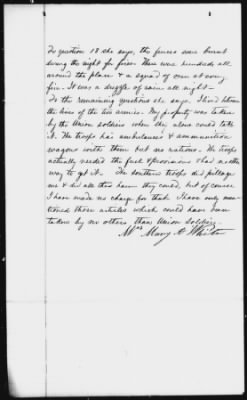 To question 18 she says, the fences were burnt
during the night for fires. There were hundreds all
around the place & a squad of men at every
fire. It was a drizzle of rain all night—
To the remaining questions she says. I lived between
the lines of the two armies. My property was taken
by the Union soldiers when they alone could take
it. The troops had ambulances & ammunition
wagons with them but no rations. The troops
actually needed the fuel & provisions & had no other
way to get it. The Southern troops did pillage
me & did all the harm they could, but of course
I have made no charge for that. I have only men-
tioned those articles which could have been
taken by no others than Union Soldiers.
Mrs Mary A. White